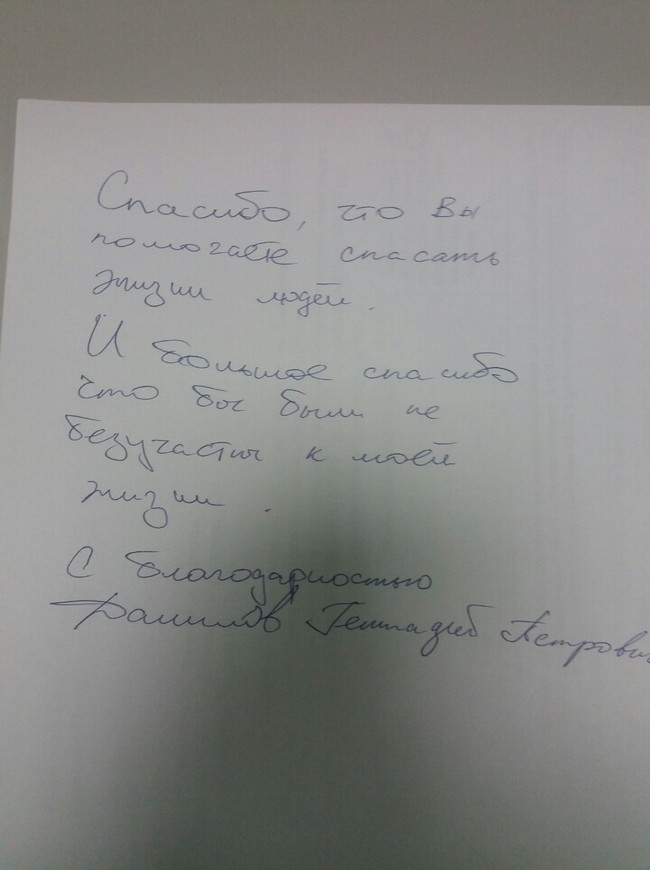 Спасибо, что Вы
помогаете спасать
жизни людей.
И большое спасибо
что вы были не
безучастны к моей
жизни.
С благодарностью
Данилов Геннадий Петрович